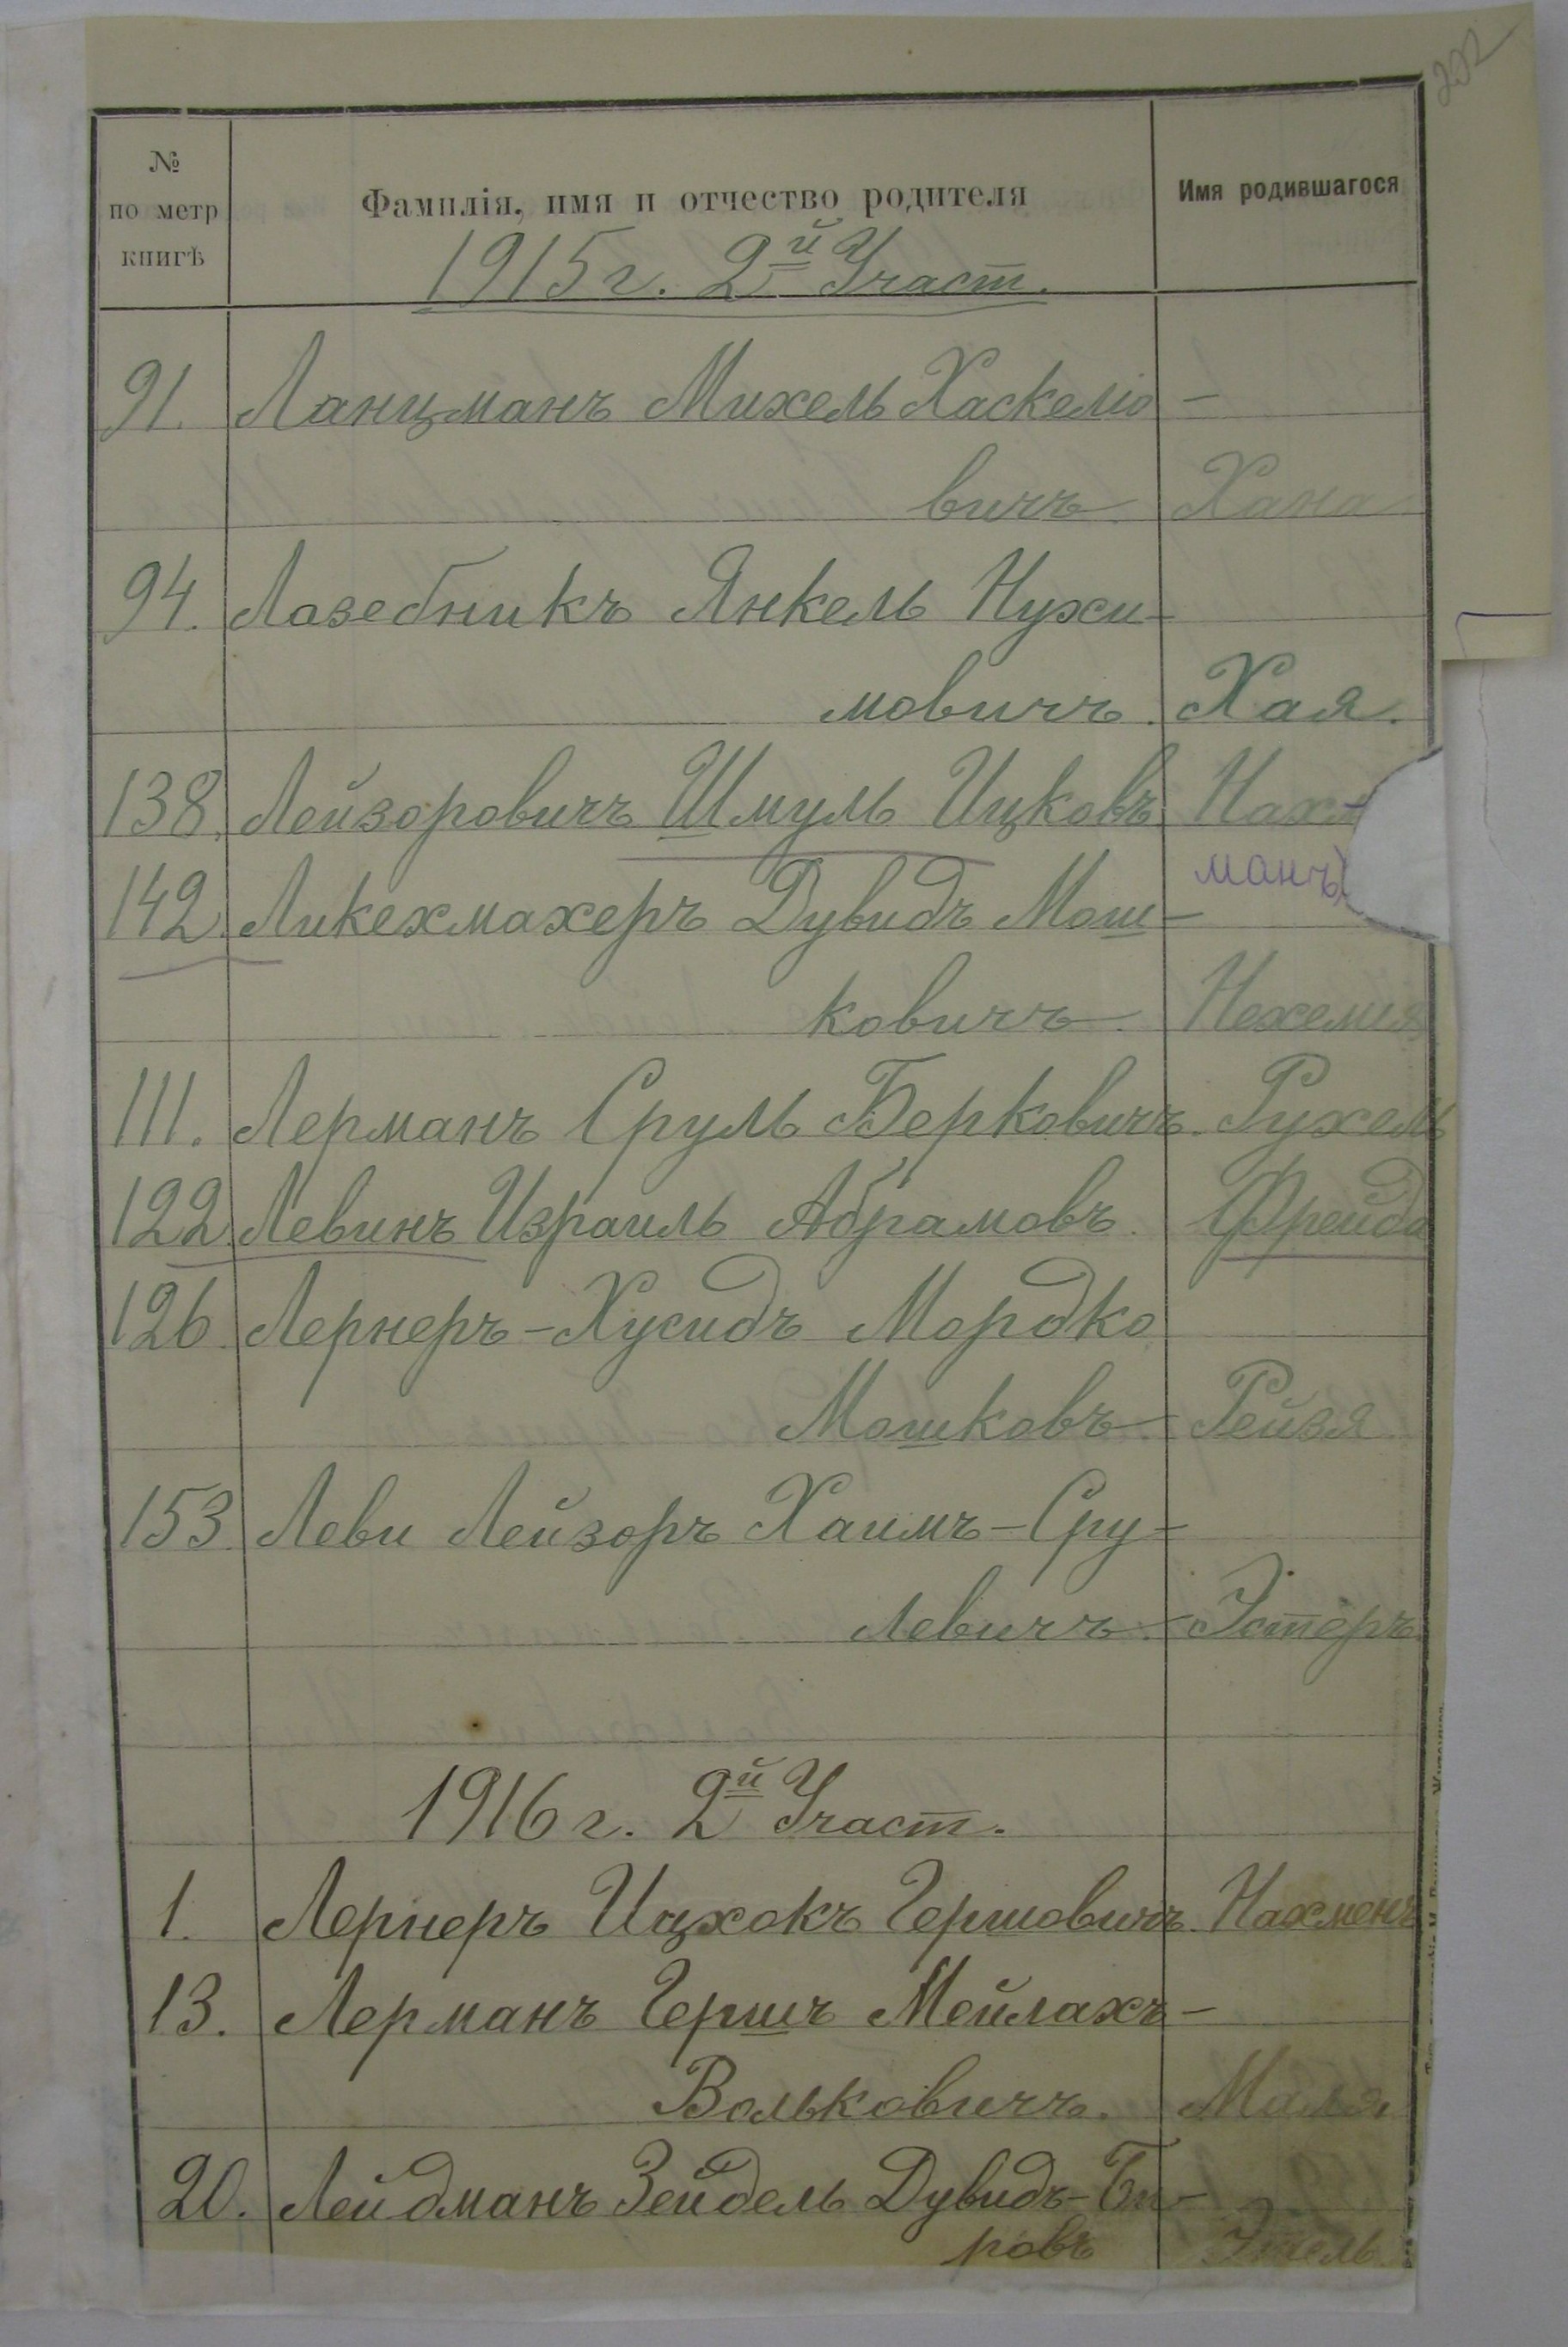 202
№ по метр книгѣ Фамилія, имя и отчество родителя Имя родившагося
1915 г. 2й Участ.
91. Ланцманъ Михель Хаскеліо-
вичъ Хана
94. Лазебникъ Янкель Нухи-
мовичъ. Хая.
138. Лейзоровичъ Шмуль Ицковъ Нах-
манъ
142. Ликехмахеръ Дувидъ Мош-
ковичъ. Нехемія
111. Лерманъ Сруль Берковичъ. Рухель
122. Левинъ Израиль Абрамовъ. Фрейда
126. Лернеръ-Хусидъ Мордко
Мошковъ Рейзя
153. Леви Лейзоръ Хаимъ-Сру-
левичъ. Эстеръ.
1916 г. 2й Участ.
1. Лернеръ Ицхокъ Гершовичъ. Нахменъ
13. Лерманъ Гершъ Мейлахъ-
Вольковичъ. Маля
20. Лейдманъ Зейдель Дувидъ-Бе-
ровъ Этель